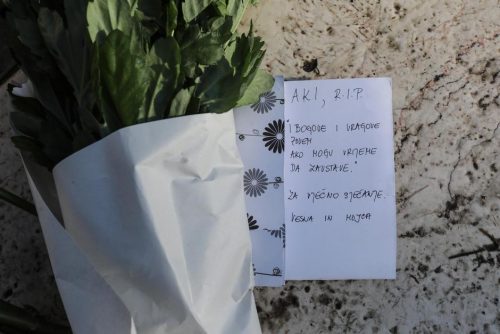 AKI, R.I.P.
"I BOGOVE I VRAGOVE
ZOVEM
AKO MOGU VRIJEME
DA ZAUSTAVE."
ZA VJEČNO SJEĆANJE.
VESNA IN MOJCA